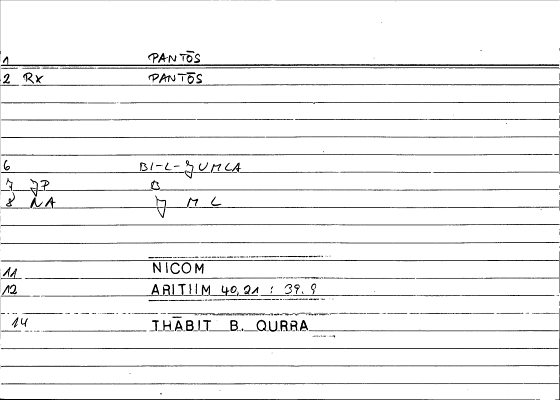 1 PANTŌS
2 RX PANTŌS
6 BI-L-JUMLA
7 JP B
8 NA J M L
11 NICOM
12 ARITIIM 40,21 : 39.9
14 THĀBIT B. QURRA